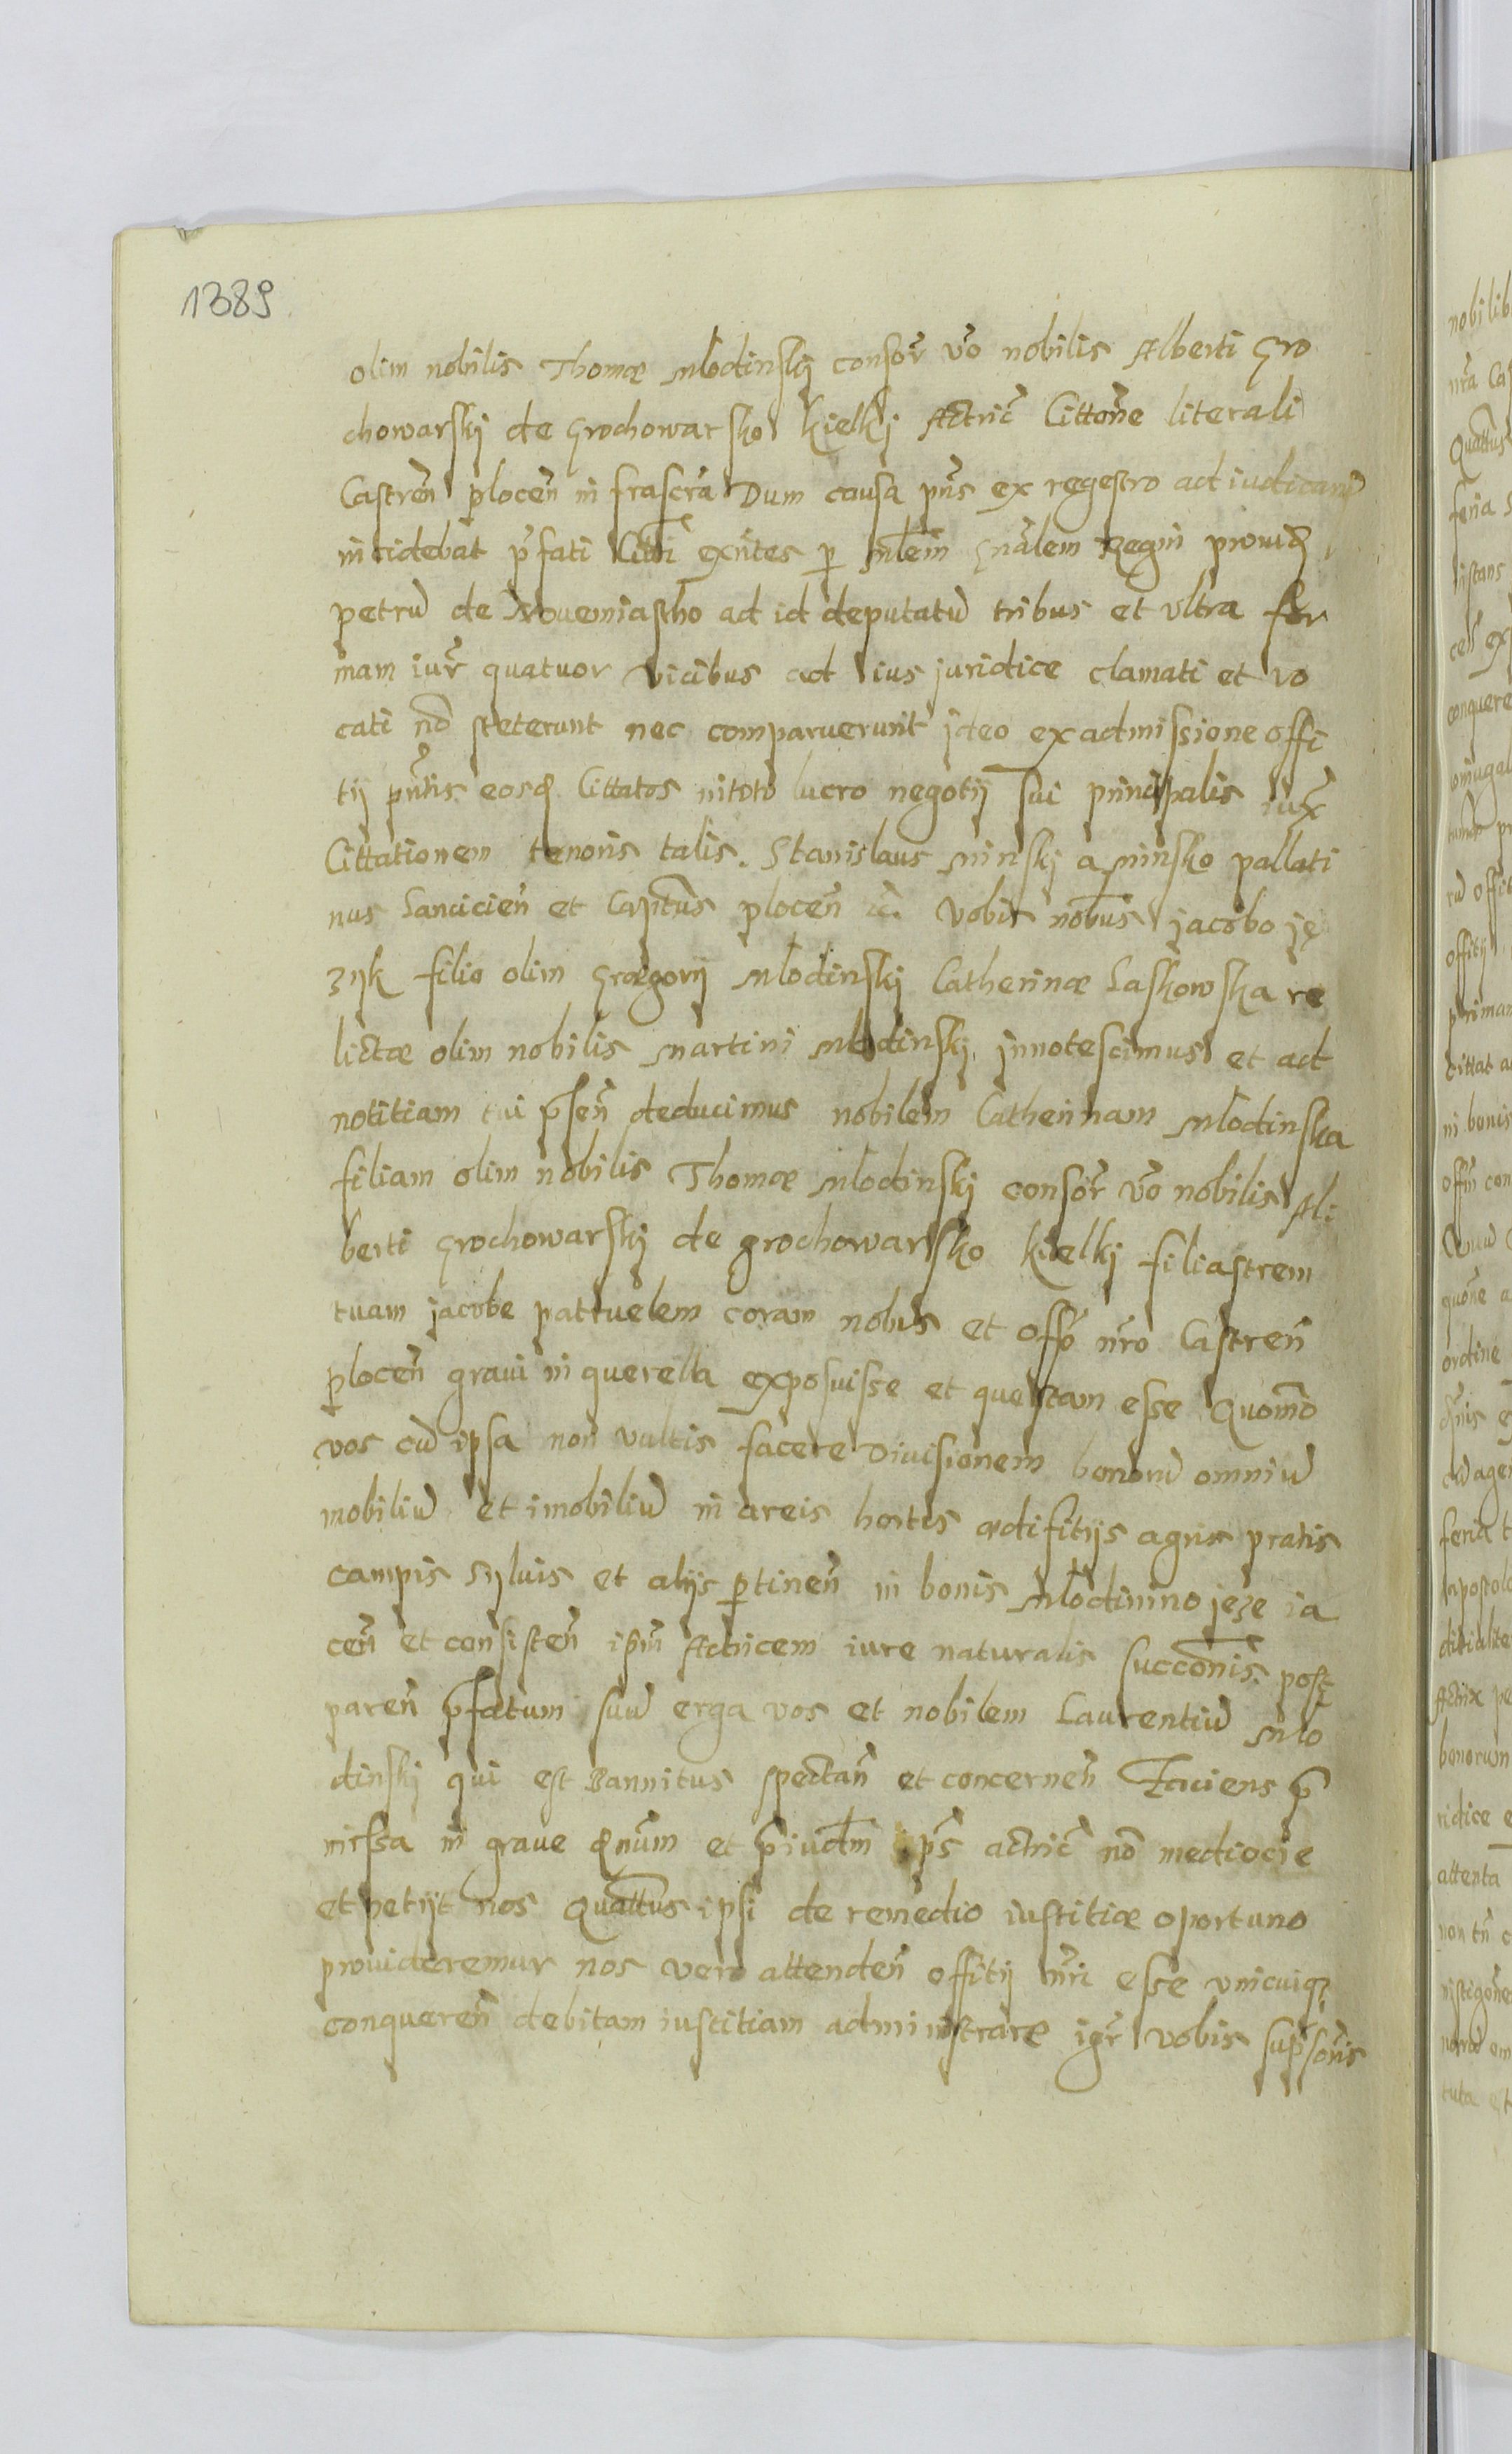 1389
olim nobilis Thomæ Mlodinskÿ consor̃ vo nobilis Alberti Gro
chowarskÿ de Grochowarsko Kielkj Actric̃ Cittone literali
Castren̄ plocen̄ infrascr̃a Dum causa pn̄s ex regestro ad iudicand
incidebat p̃fati Citti exn̄tes p mlem gn̄alem Regni prouid
petru de Novemiastho ad id deputatu tribus et vltra for
mam iur̃ quatuor vicibus ad ius juridice clamati et vo
cati no steterunt nec comparuerunt ideo ex admissione offi
tij pn̄tis eosq Cittatos in toto lucro negotij sui principalis iux
Cittationem tenoris talis. Stanislaus Minskj a Minsko pallati
nus Lancicien̄ et Capitus plocen̄ ic̃. Vobis nobus jacobo je
zyk filio olim Grægorij Mlodinskj Catherinæ Laskowska re
lictæ olim nobilis Martini Mlodinskj, jnnotescimus et ad
notitiam tui p̃sen̄ deducimus nobilem Catherinam Mlodinska
filiam olim nobilis Thomæ Mlodinskj consor̃ vo nobilis Al
berti Grochowarskj de grochowarsko Kielkj filiastrem
tuam jacobe pattuelem coram nobis et offo nr̃o Castren̄
plocen̄ graui in querella exposuisse et questam esse Quomo
vos cu ipsa non vultis facere Diuisionem bonoru omniu
mobiliu et imobiliu in areis hortis ædifitijs agris pratis
campis syluis et alijs ptinen̄ in bonis Mlodinino jeze ia
cen̄ et consisten̄ ipm̄ Actricem iure naturalis succonis post
paren̄ p̃fatum suu erga vos et nobilem Laurentiu Mlo
dinskj qui est Bannitus spectan̄ et concernen̄ Faciens p̃
missa in graue dnum et p̃iudm ips̄ actric̃ no mediocre
et petijt nos Quattus ipsi de remedio iustitiæ oportuno
prouideremur nos vero attenden̄ offitij nr̃i esse vnicuiq3
conqueren̄ debitam iustitiam administrare igr̃ vobis